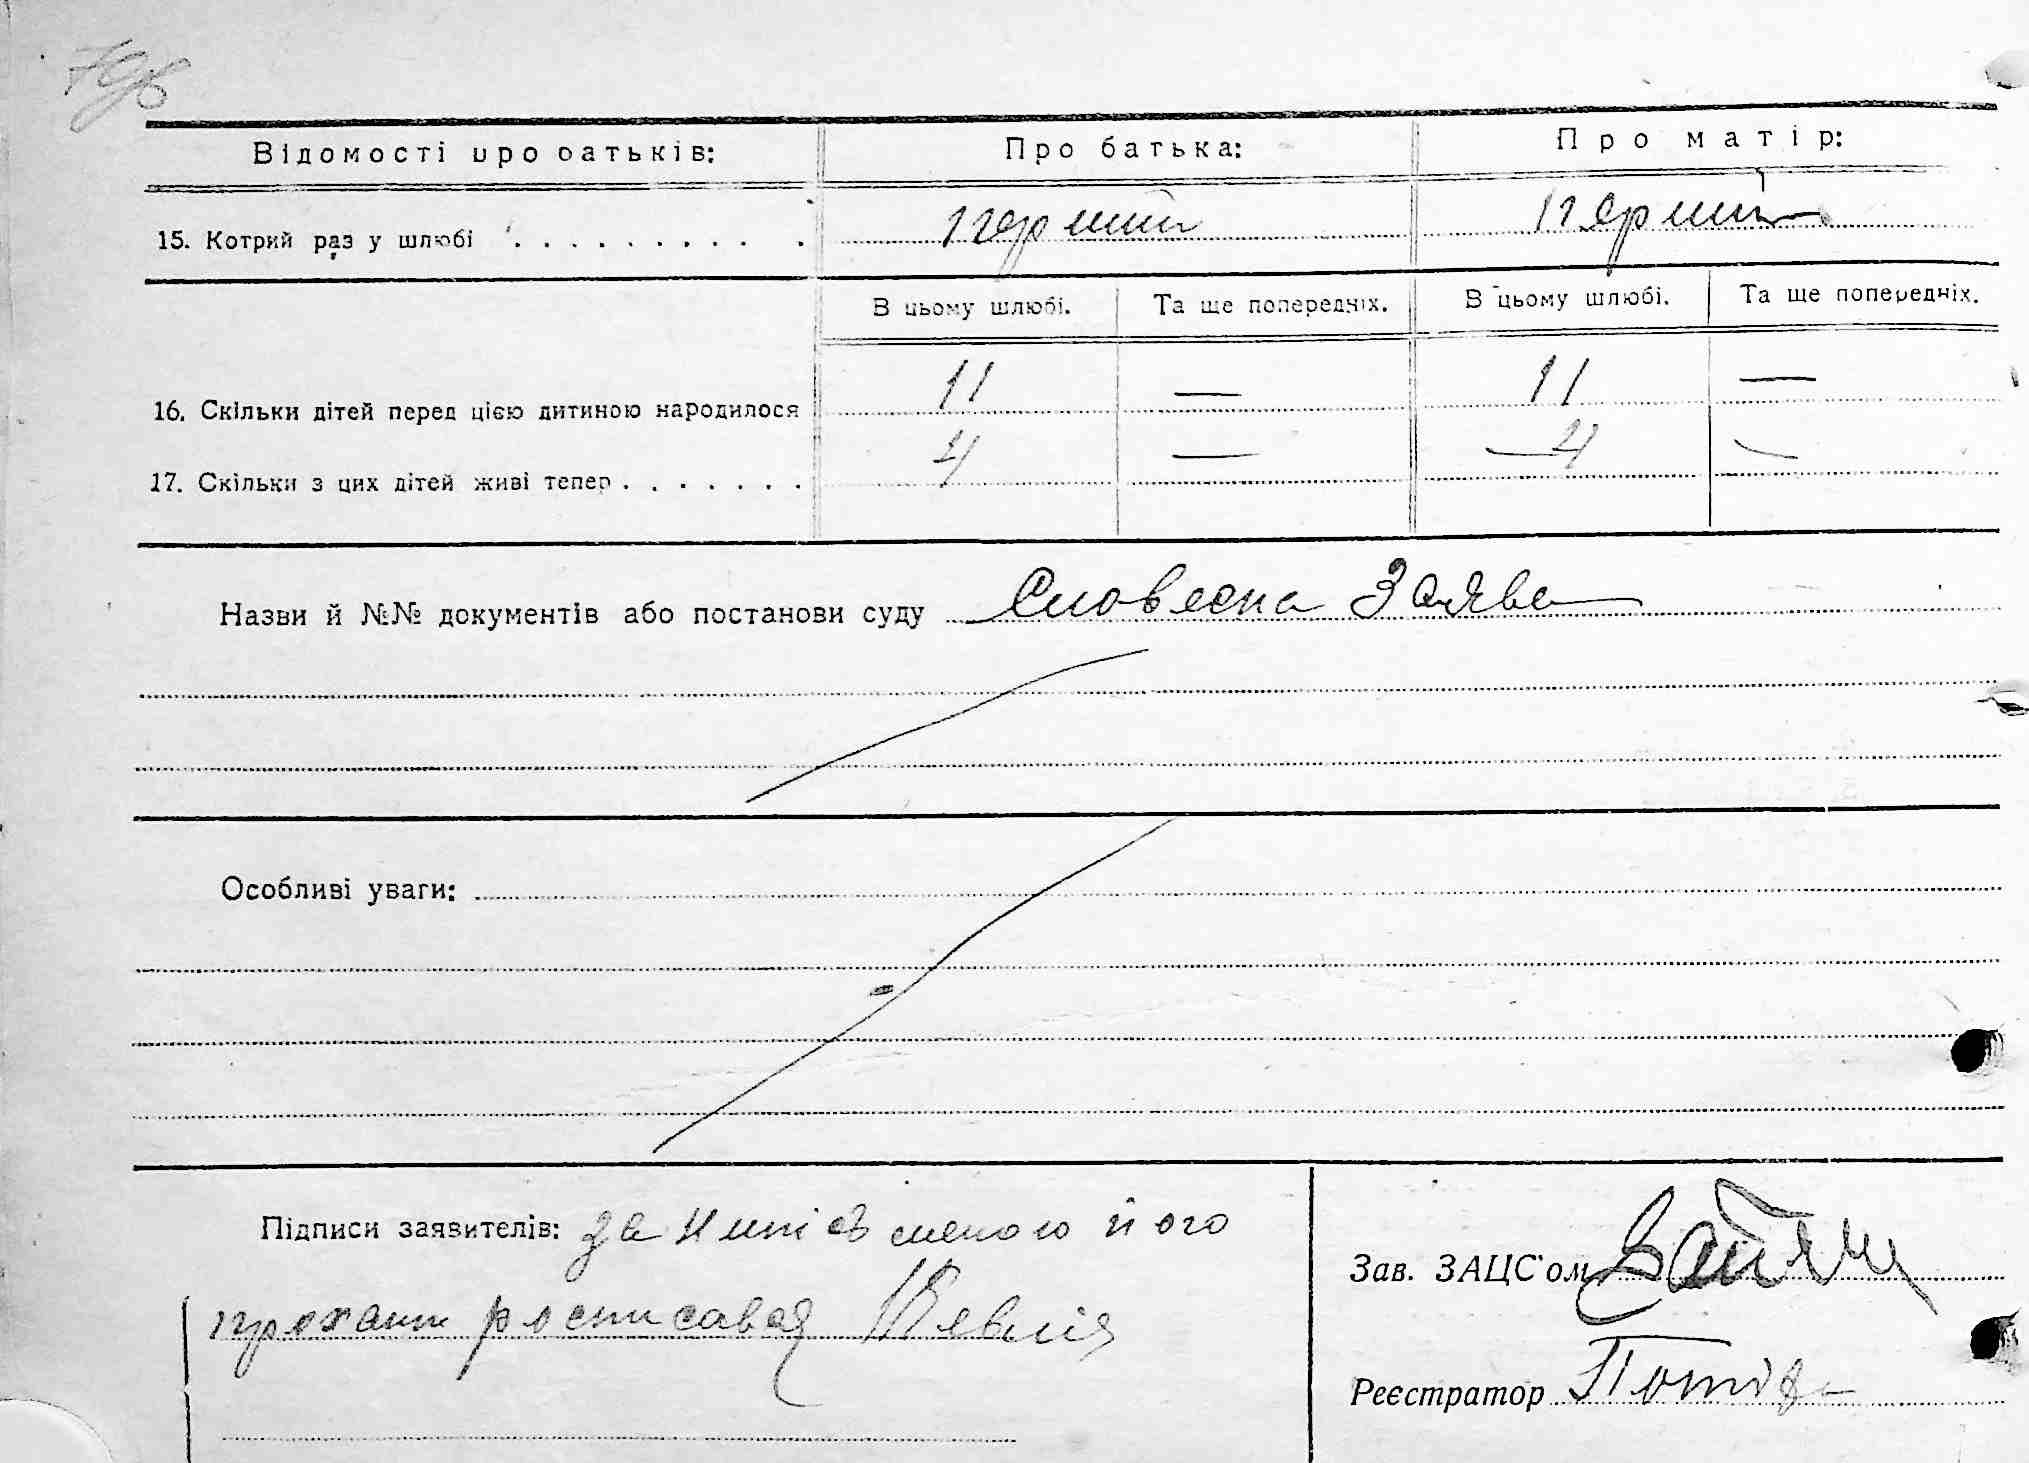 79в
Відомості про батьків: Про батька: Про матір:
15. Котрий раз у шлюбі . . . . . . . . . . перший перший
В цьому шлюбі. Та ще попередніх. В цьому шлюбі. Та ще попередніх.
16. Скільки дітей перед цією дитиною народилося 11 — 11 —
17. Скільки з цих дітей живі тепер . . . . . . . 4 — 4 —
Назви й №№ документів або постанови суду Словесна Заява
Особливі уваги:
Підписи заявителів: за його
Зав. ЗАЦС'ом Зайчик
прохання росписавсь
Реєстратор